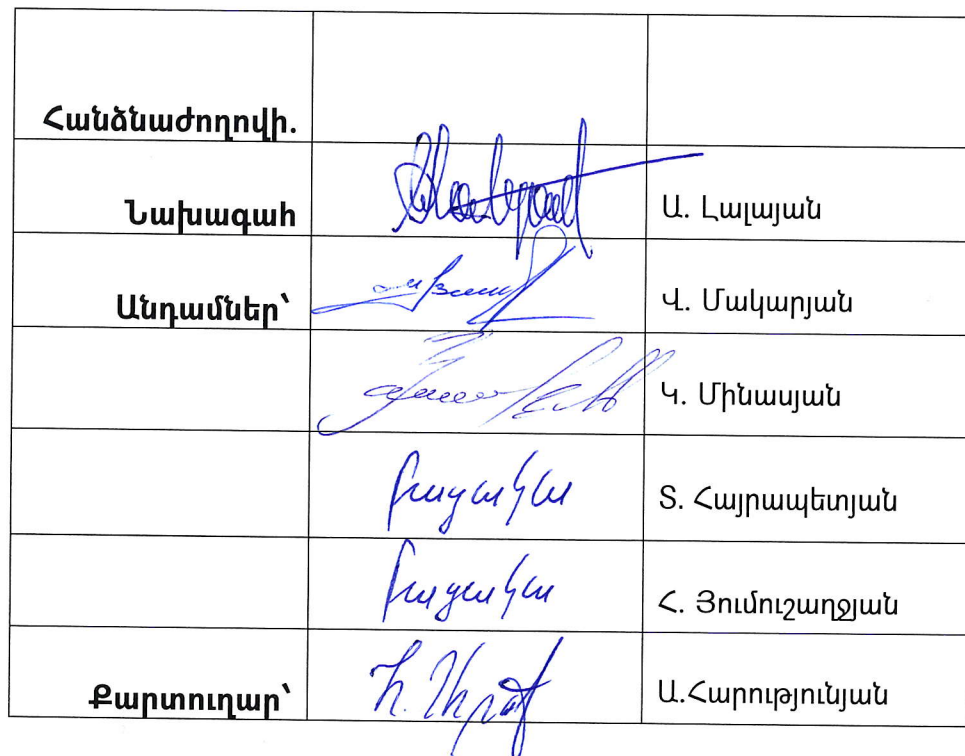 Հանձնաժողովի.
Նախագահ Ա. Լալայան
Անդամներ՝ Վ. Մակարյան
Կ. Մինասյան
բացակա Տ. Հայրապետյան
բացակա Հ. Յումուշաղջյան
Քարտուղար՝ Ա.Հարությունյան